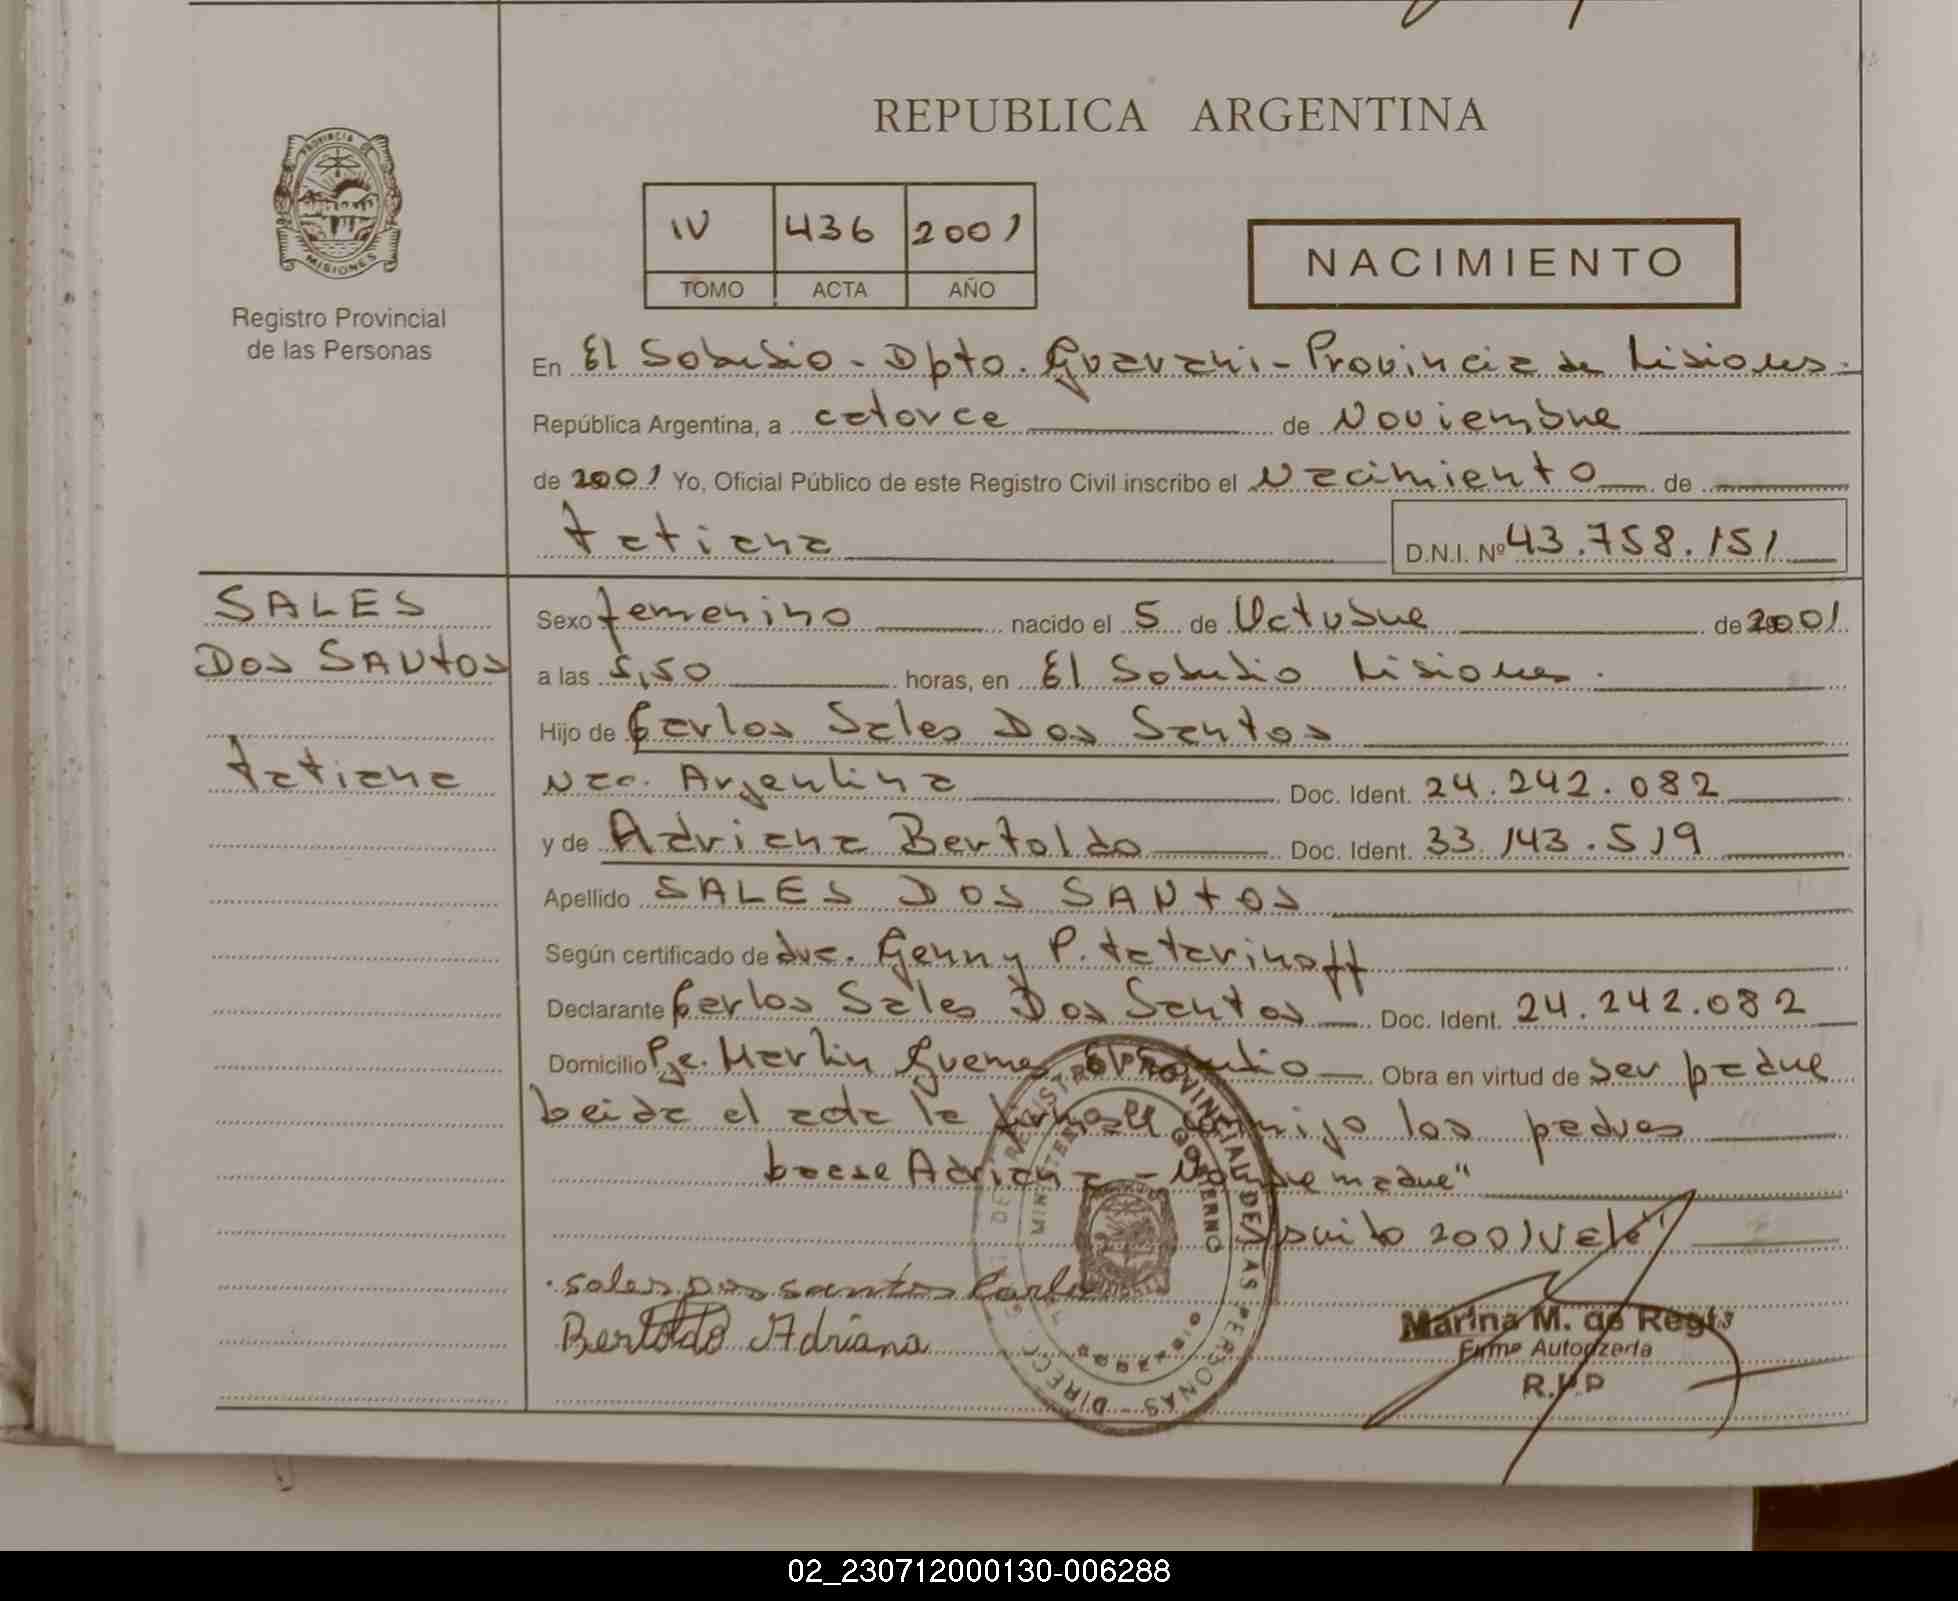 REPUBLICA ARGENTINA
PROVINCIA DE
MISIONES
Registro Provincial
de las Personas
IV 436 2001
TOMO ACTA AÑO
NACIMIENTO
En El Soberbio - Dpto. Guarani - Provincia de Misiones.
República Argentina, a catorce de Noviembre
de 2001 Yo, Oficial Público de este Registro Civil inscribo el Nacimiento de
Tatiana D.N.I. Nº 43.758.151
SALES
DOS SANTOS
Tatiana
Sexo femenino nacido el 5 de Octubre de 2001
a las 5,50 horas, en El Soberbio Misiones.
Hijo de Carlos Sales Dos Santos
Nac. Argentina Doc. Ident. 24.242.082
y de Adriana Bertoldo Doc. Ident. 33.143.519
Apellido SALES DOS SANTOS
Según certificado de dra. Genny P. Tatarinoff
Declarante Carlos Sales Dos Santos Doc. Ident. 24.242.082
Domicilio Pje. Martin Guemes El Soberbio Obra en virtud de ser padre
leida el acta la firman conmigo los padres
Adriana - Nombre madre"
2001 vale"
Sales Dos Santos Carlos
Bertoldo Adriana
Marina M. de Regis
Firma Autorizada
R.P.P
02_230712000130-006288